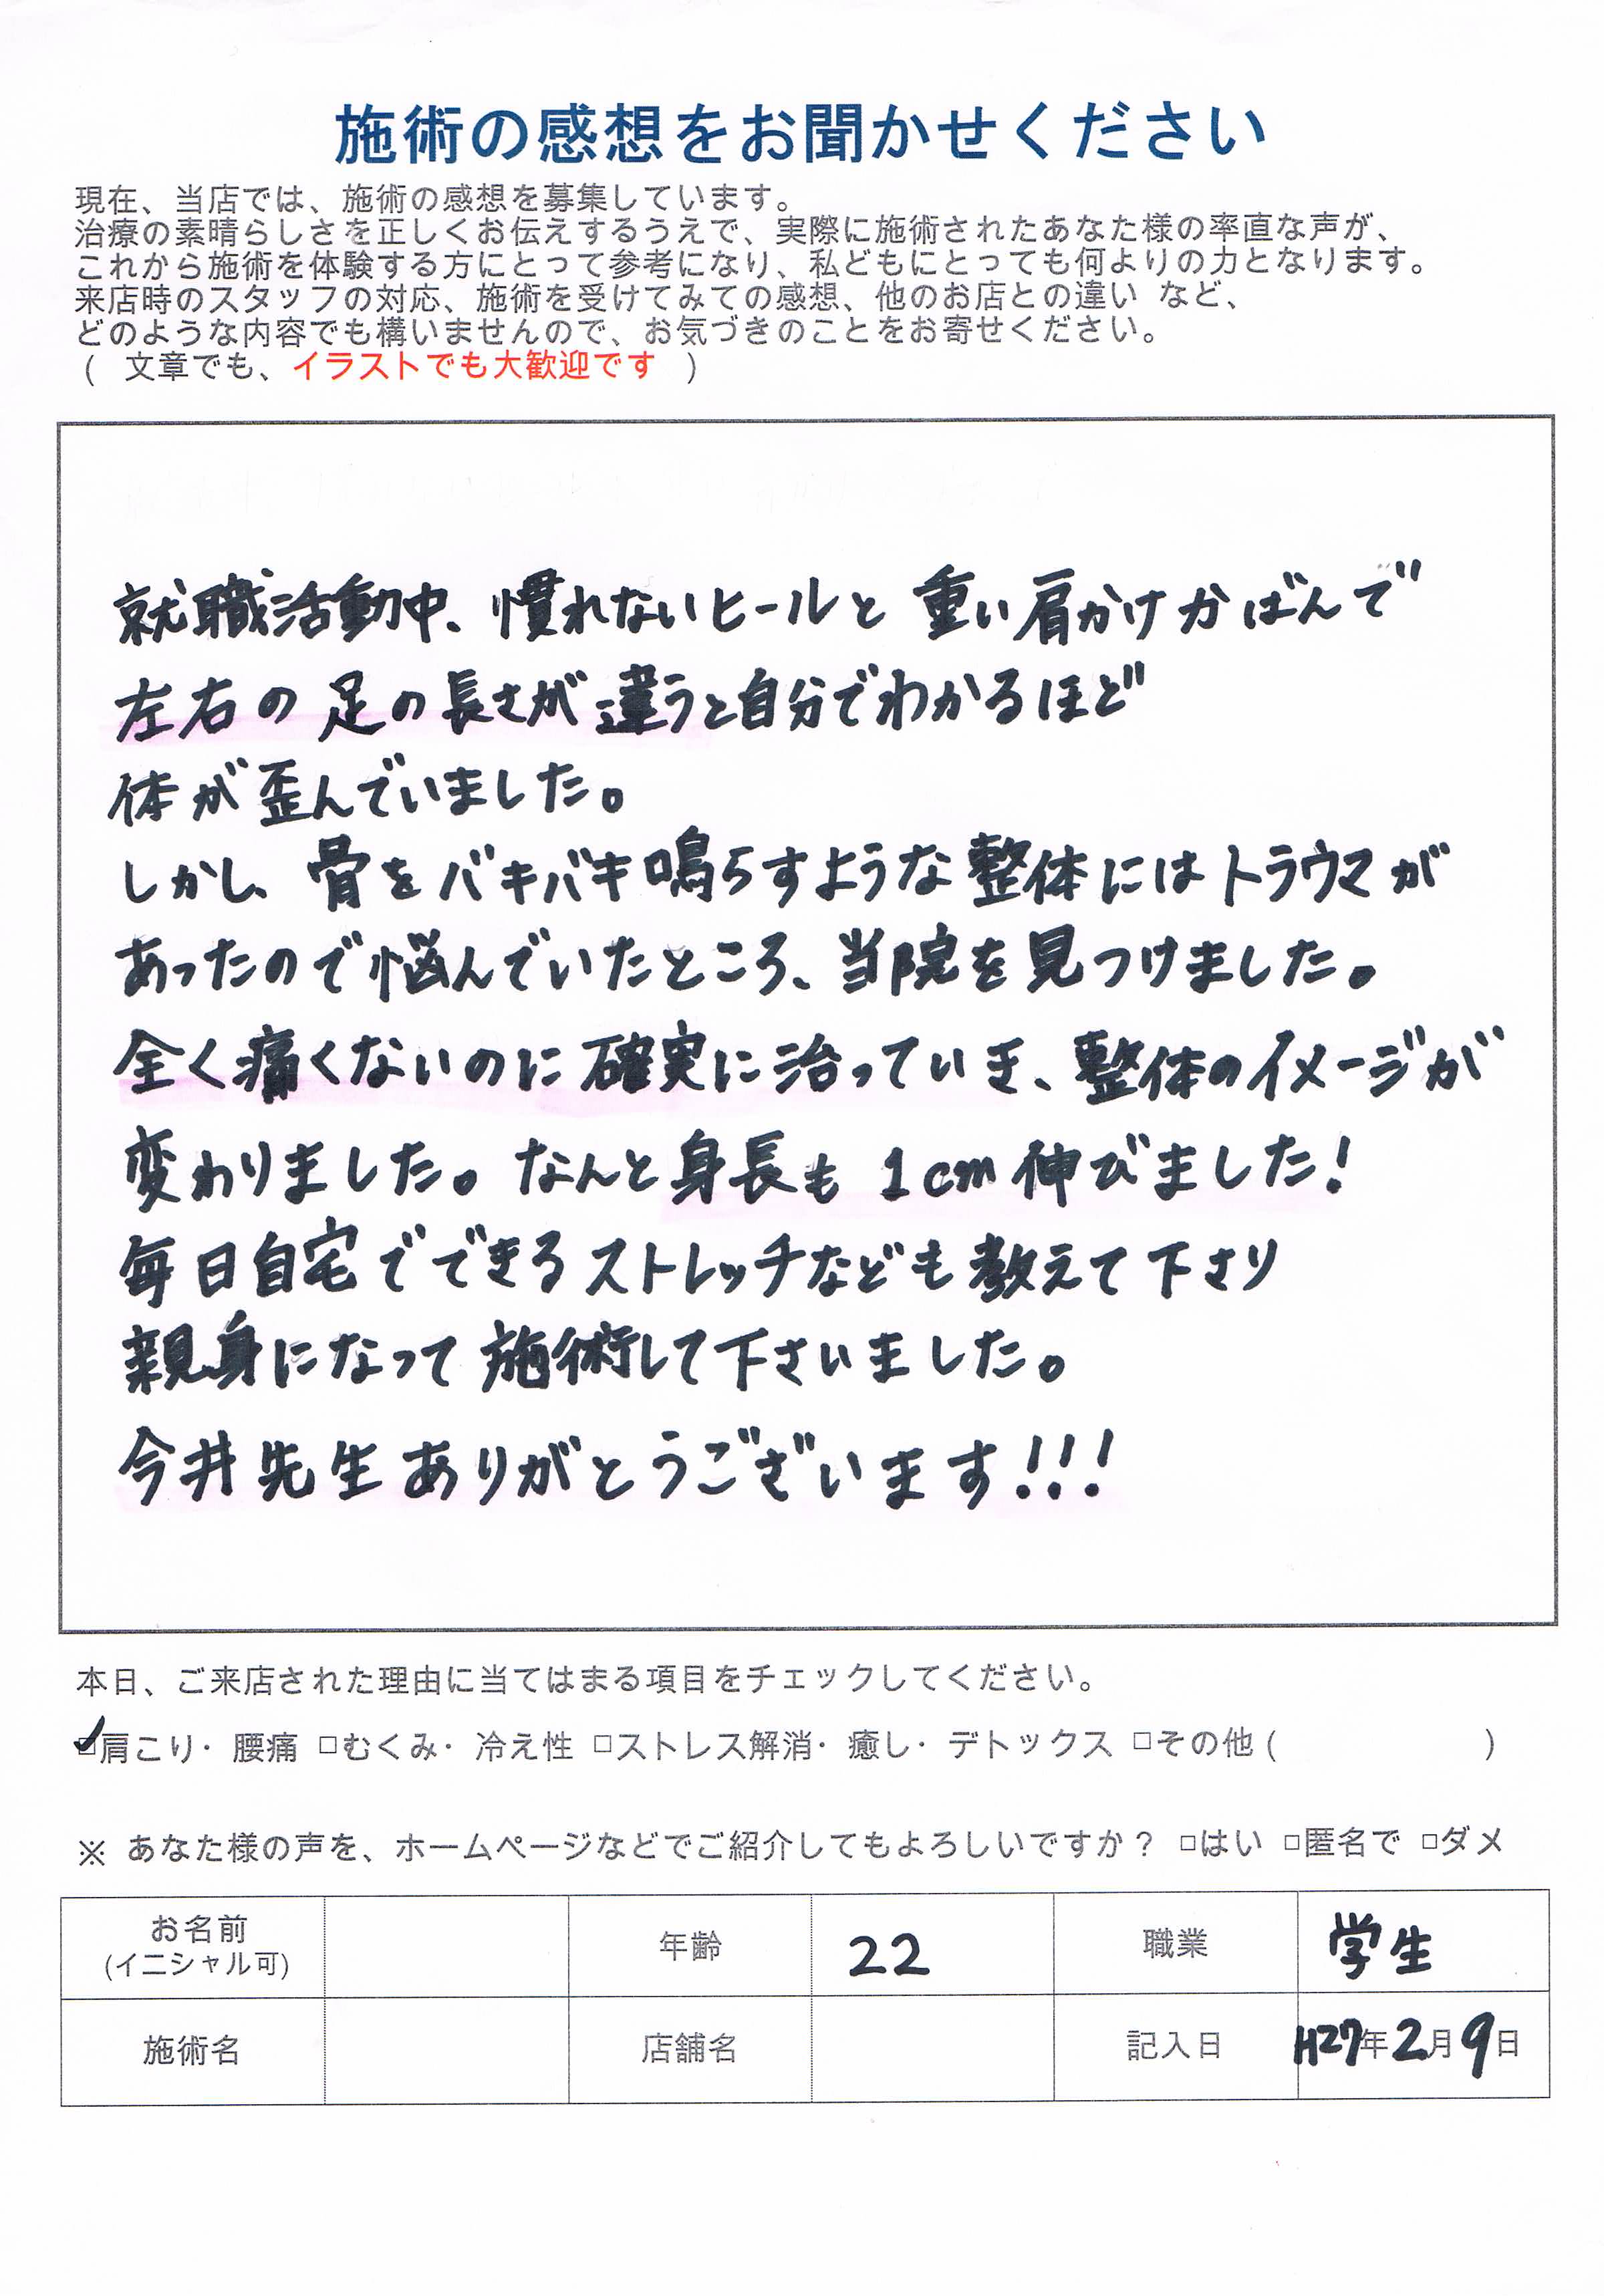 施術の感想をお聞かせください
現在、当店では、施術の感想を募集しています。
治療の素晴らしさを正しくお伝えするうえで、実際に施術されたあなた様の率直な声が、
これから施術を体験する方にとって参考になり、私どもにとっても何よりの力となります。
来店時のスタッフの対応、施術を受けてみての感想、他のお店との違い など、
どのような内容でも構いませんので、お気づきのことをお寄せください。
( 文章でも、イラストでも大歓迎です )
就職活動中、慣れないヒールと重い肩かけかばんで
左右の足の長さが違うと自分でわかるほど
体が歪んでいました。
しかし、骨をバキバキ鳴らすような整体にはトラウマが
あったので悩んでいたところ、当院を見つけました。
全く痛くないのに確実に治っていき、整体のイメージが
変わりました。なんと身長も1cm伸びました!
毎日自宅でできるストレッチなども教えて下さり
親身になって施術して下さいました。
今井先生ありがとうございます!!!
本日、ご来店された理由に当てはまる項目をチェックしてください。
☑肩こり・腰痛 □むくみ・冷え性 □ストレス解消・癒し・デトックス □その他 ( )
※ あなた様の声を、ホームページなどでご紹介してもよろしいですか? □はい □匿名で □ダメ
お名前 年齢 22 職業 学生
(イニシャル可)
施術名 店舗名 記入日 H27年2月9日